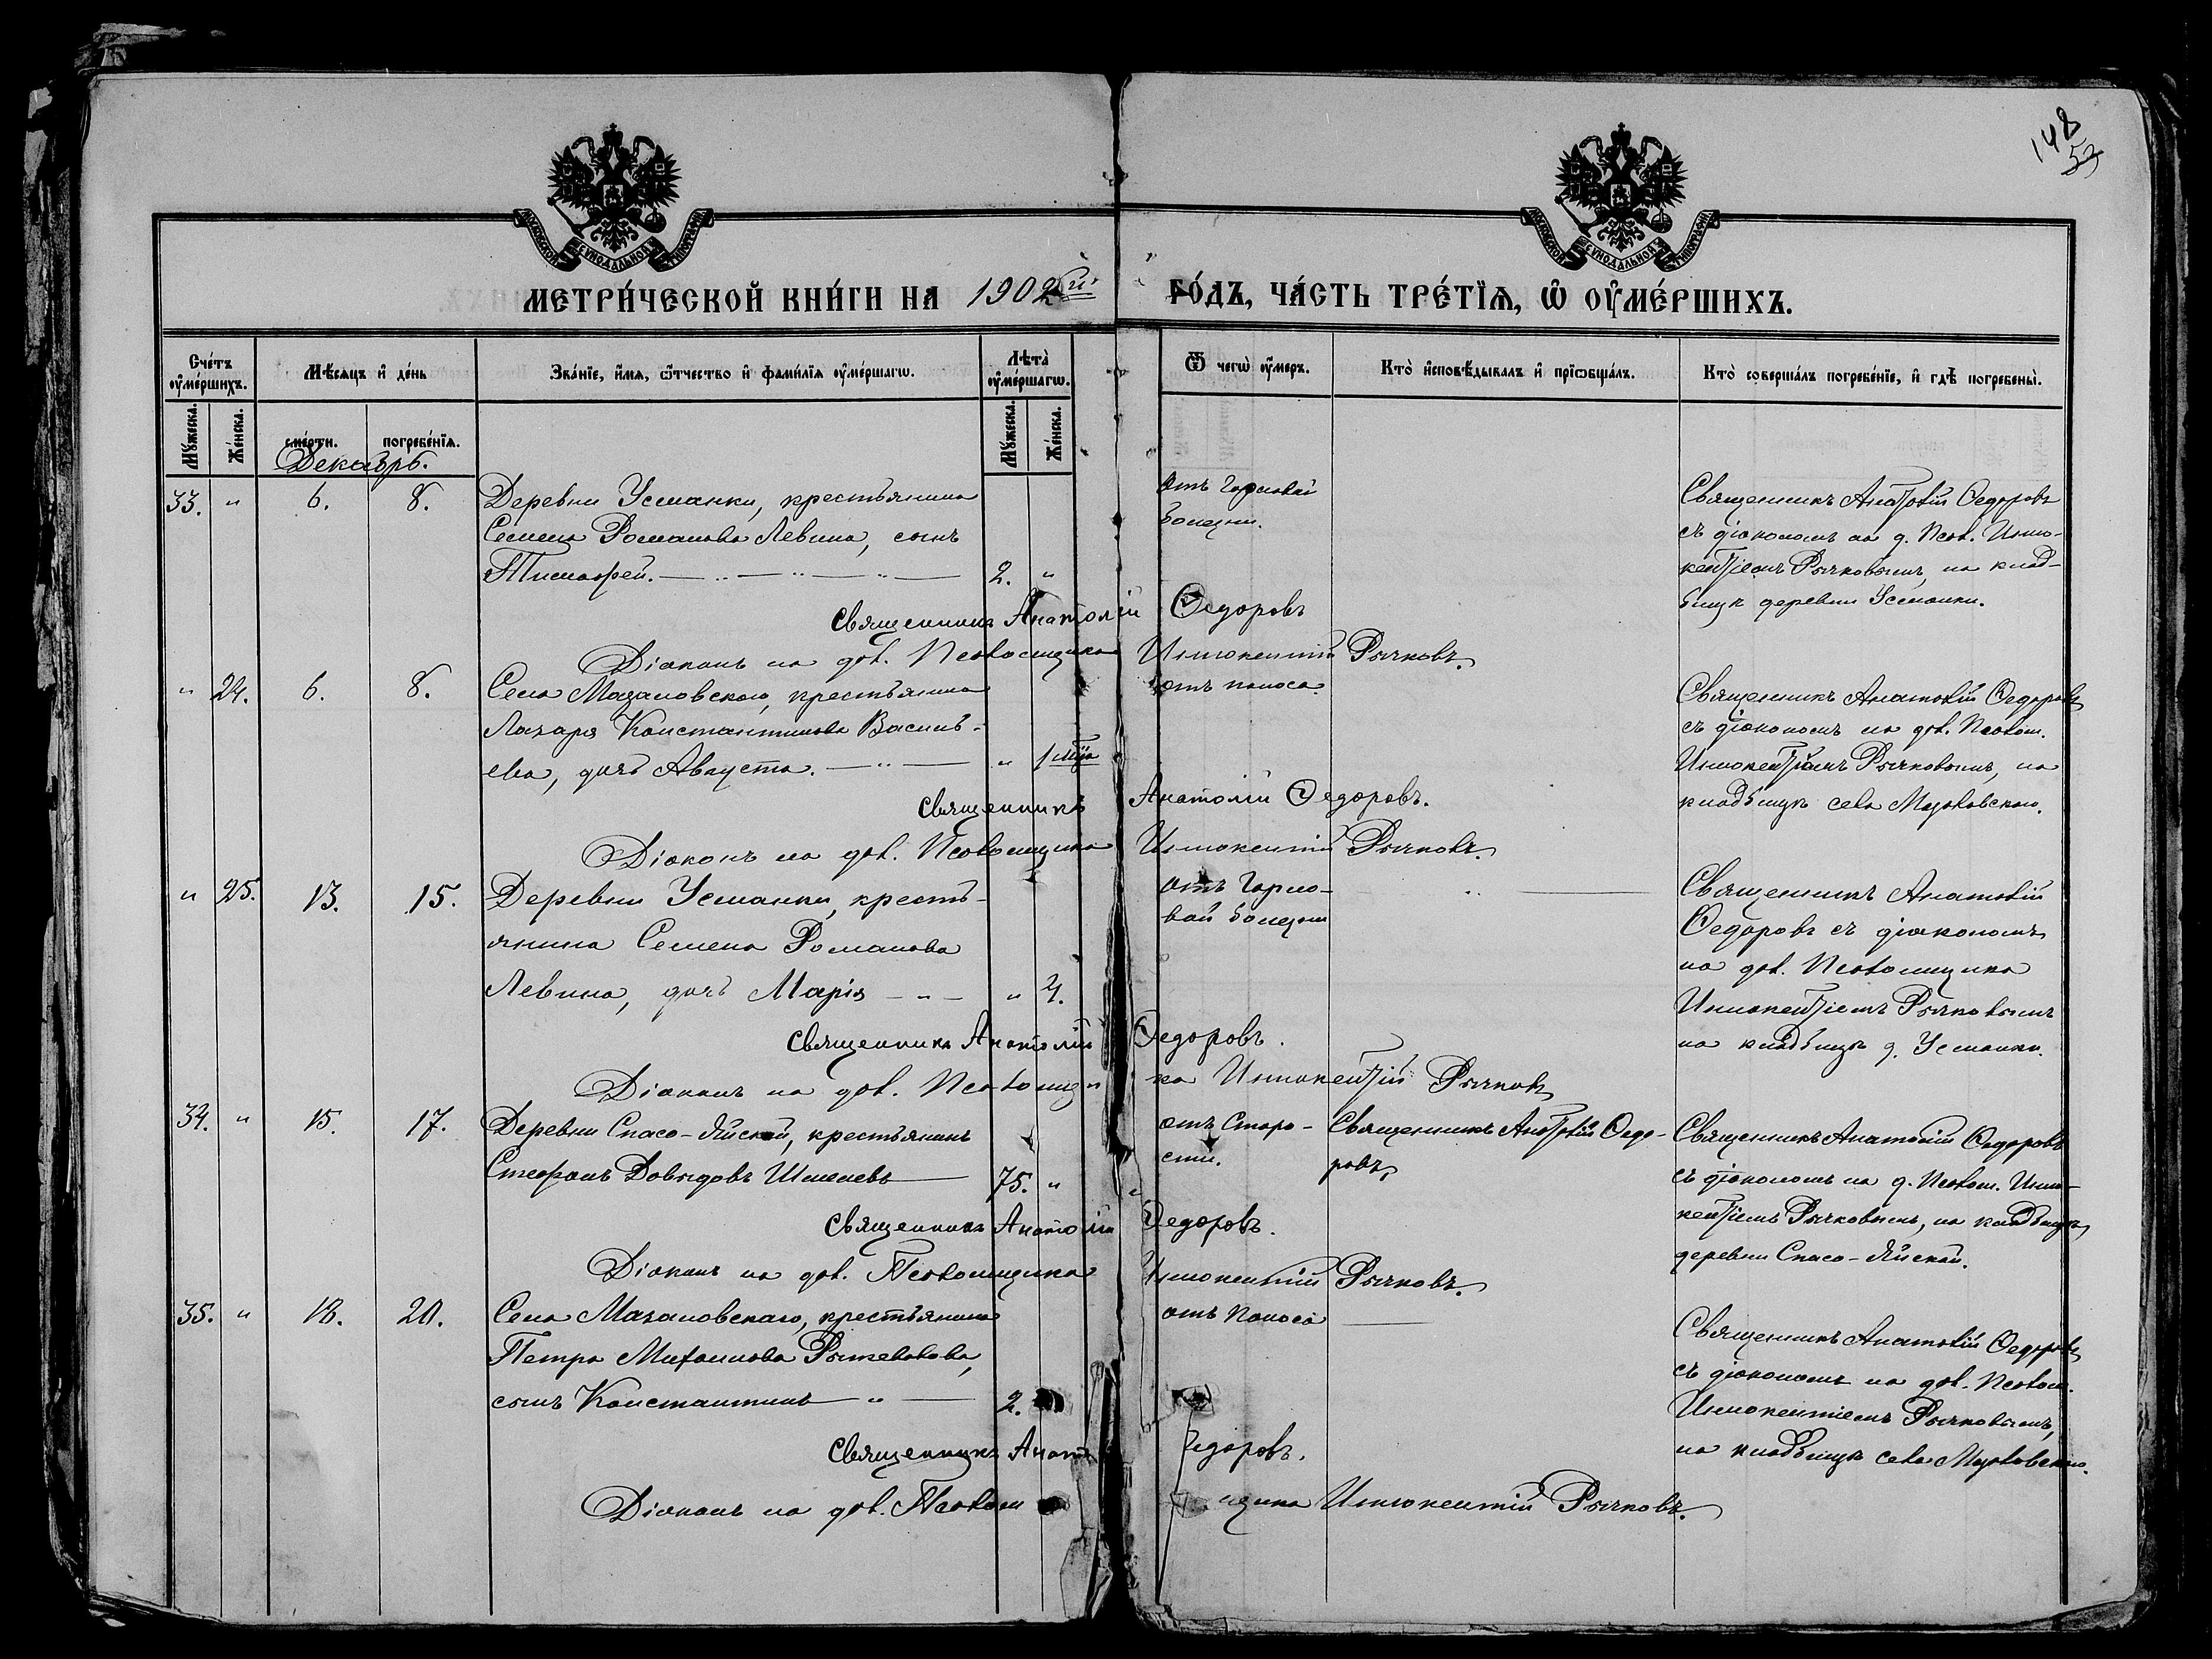 148
53
МОСКОВСКОЙ СѴНОДАЛЬНОЙ ТИПОГРАФІИ
МОСКОВСКОЙ СѴНОДАЛЬНОЙ ТИПОГРАФІИ
МЕТРИ́ЧЕСКОЙ КНИ́ГИ НА 1902й
ГО́ДЪ, ЧА́СТЬ ТРЕ́ТЇѦ, Ѡ҆ ОУ҆МЕ́РШИХЪ.
Сче́тъ оу҆ме́ршихъ.
Мѣ́сѧцъ и҆ де́нь
Зва́нїе, и҆́мѧ, ѻ҆́тчество и҆ фами́лїѧ оу҆ме́ршагѡ.
Лѣ́та оу҆ме́ршагѡ.
Ѿ чегѡ̀ оу҆́меръ.
Кто̀ и҆сповѣ́дывалъ и҆ прїѡбща́лъ.
Кто̀ соверша́лъ погребе́нїе, и҆ гдѣ̀ погребены̀.
Мꙋ́жеска.
Же́нска.
сме́рти.
погребе́нїѧ.
Мꙋ́жеска.
Же́нска.
Декабрь.
33. " 6. 8.
Деревни Усманки, крестьянина
Семена Романова Левина, сынъ
Тимофей. — " — " — " — 2. "
отъ горловой
болезни.
Священникъ Анатолій Ѳедоровъ
съ діакономъ на д. Псал. Инно-
кентіемъ Рычковымъ, на клад-
бищѣ деревни Усманки.
Священникъ Анатолій Ѳедоровъ
Діаконъ на дол. Псаломщика Иннокентій Рычковъ.
" 24. 6. 8.
Села Мазаловскаго, крестьянина
Лазаря Константинова Василь-
ева, дочь Августа. — " — " 1 мца
отъ поноса.
Священникъ Анатолій Ѳедоровъ
съ діакономъ на дол. Псалом.
Иннокентіемъ Рычковымъ, на
кладбищѣ села Мазаловскаго.
Священникъ Анатолій Ѳедоровъ.
Діаконъ на дол. Псаломщика Иннокентій Рычковъ.
" 25. 13. 15.
Деревни Усманки, кресть-
янина Семена Романова
Левина, дочь Марія — " — " 4.
отъ горло-
вой болезни
"
Священникъ Анатолій
Ѳедоровъ съ діакономъ
на дол. Псаломщика
Иннокентіемъ Рычковымъ
на кладбищѣ д. Усманки.
Священникъ Анатолій Ѳедоровъ.
Діаконъ на дол. Псаломщика Иннокентій Рычковъ
34. " 15. 17.
Деревни Спасо-Яйской, крестьянинъ
Стефанъ Давыдовъ Шмелевъ — 75. "
отъ старо-
сти.
Священникъ Анатолій Ѳедо-
ровъ
Священникъ Анатолій Ѳедоровъ
съ діакономъ на д. Псалом. Инно-
кентіемъ Рычковымъ, на кладбищѣ
деревни Спасо-Яйской.
Священникъ Анатолій Ѳедоровъ.
Діаконъ на дол. Псаломщика Иннокентій Рычковъ.
35. " 18. 20.
Села Мазаловскаго, крестьянина
Петра Михаилова
сынъ Константинъ — " — 2.
отъ поноса
Священникъ Анатолій Ѳедоровъ
съ діакономъ на дол. Псалом.
Иннокентіемъ Рычковымъ,
на кладбищѣ села Мазаловскаго.
Священникъ Анат Ѳедоровъ.
Діаконъ на дол. Псаломщика Иннокентій Рычковъ.